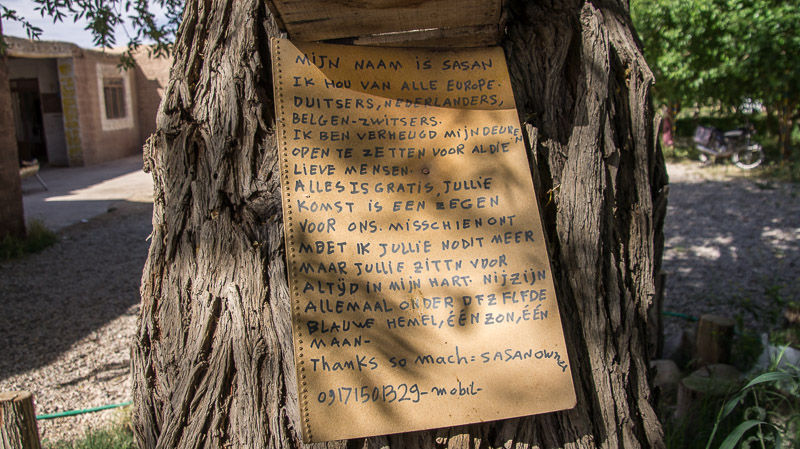 MIJN NAAM IS SASAN
IK HOU VAN ALLE EUROPE.
DUITSERS, NEDERLANDERS,
BELGEN-ZWITSERS.
IK BEN VERHEUGD MIJN DEUREN
OPEN TE ZETTEN VOOR AL DIE
LIEVE MENSEN.
ALLES IS GRATIS, JULLIE
KOMST IS EEN ZEGEN
VOOR ONS. MISSCHIEN ONT
MOET IK JULLIE NODIT MEER
MAAR JULLIE ZITTN VOOR
ALTYD IN MIJN HART. NIJ ZIJN
ALLEMAAL ONDER DEZELFDE
BLAUWE HEMEL, ÉÉN ZON, ÉÉN
MAAN-
Thanks so mach = SASAN OWNER
09171501329-mobil-